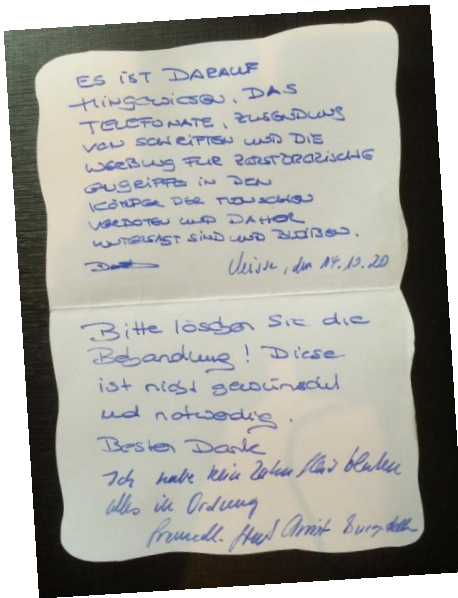 ES IST DARAUF
HINGEWIESEN, DAS
TELEFONATE, ZUSENDUNG
VON SCHRIFTEN UND DIE
WERBUNG FÜR ZERSTÖRERISCHE
ANGRIFFE IN DEN
KÖRPER DER MENSCHEN
VERBOTEN UND DAHER
UNTERLAST SIND UND BLEIBEN.
den 14.10.20
Bitte löschen Sie die
Behandlung! Diese
ist nicht gewünscht
und notwendig.
Besten Dank
Ich habe kein Zahnfleischbluten
alles in Ordnung
freundl. Gruß